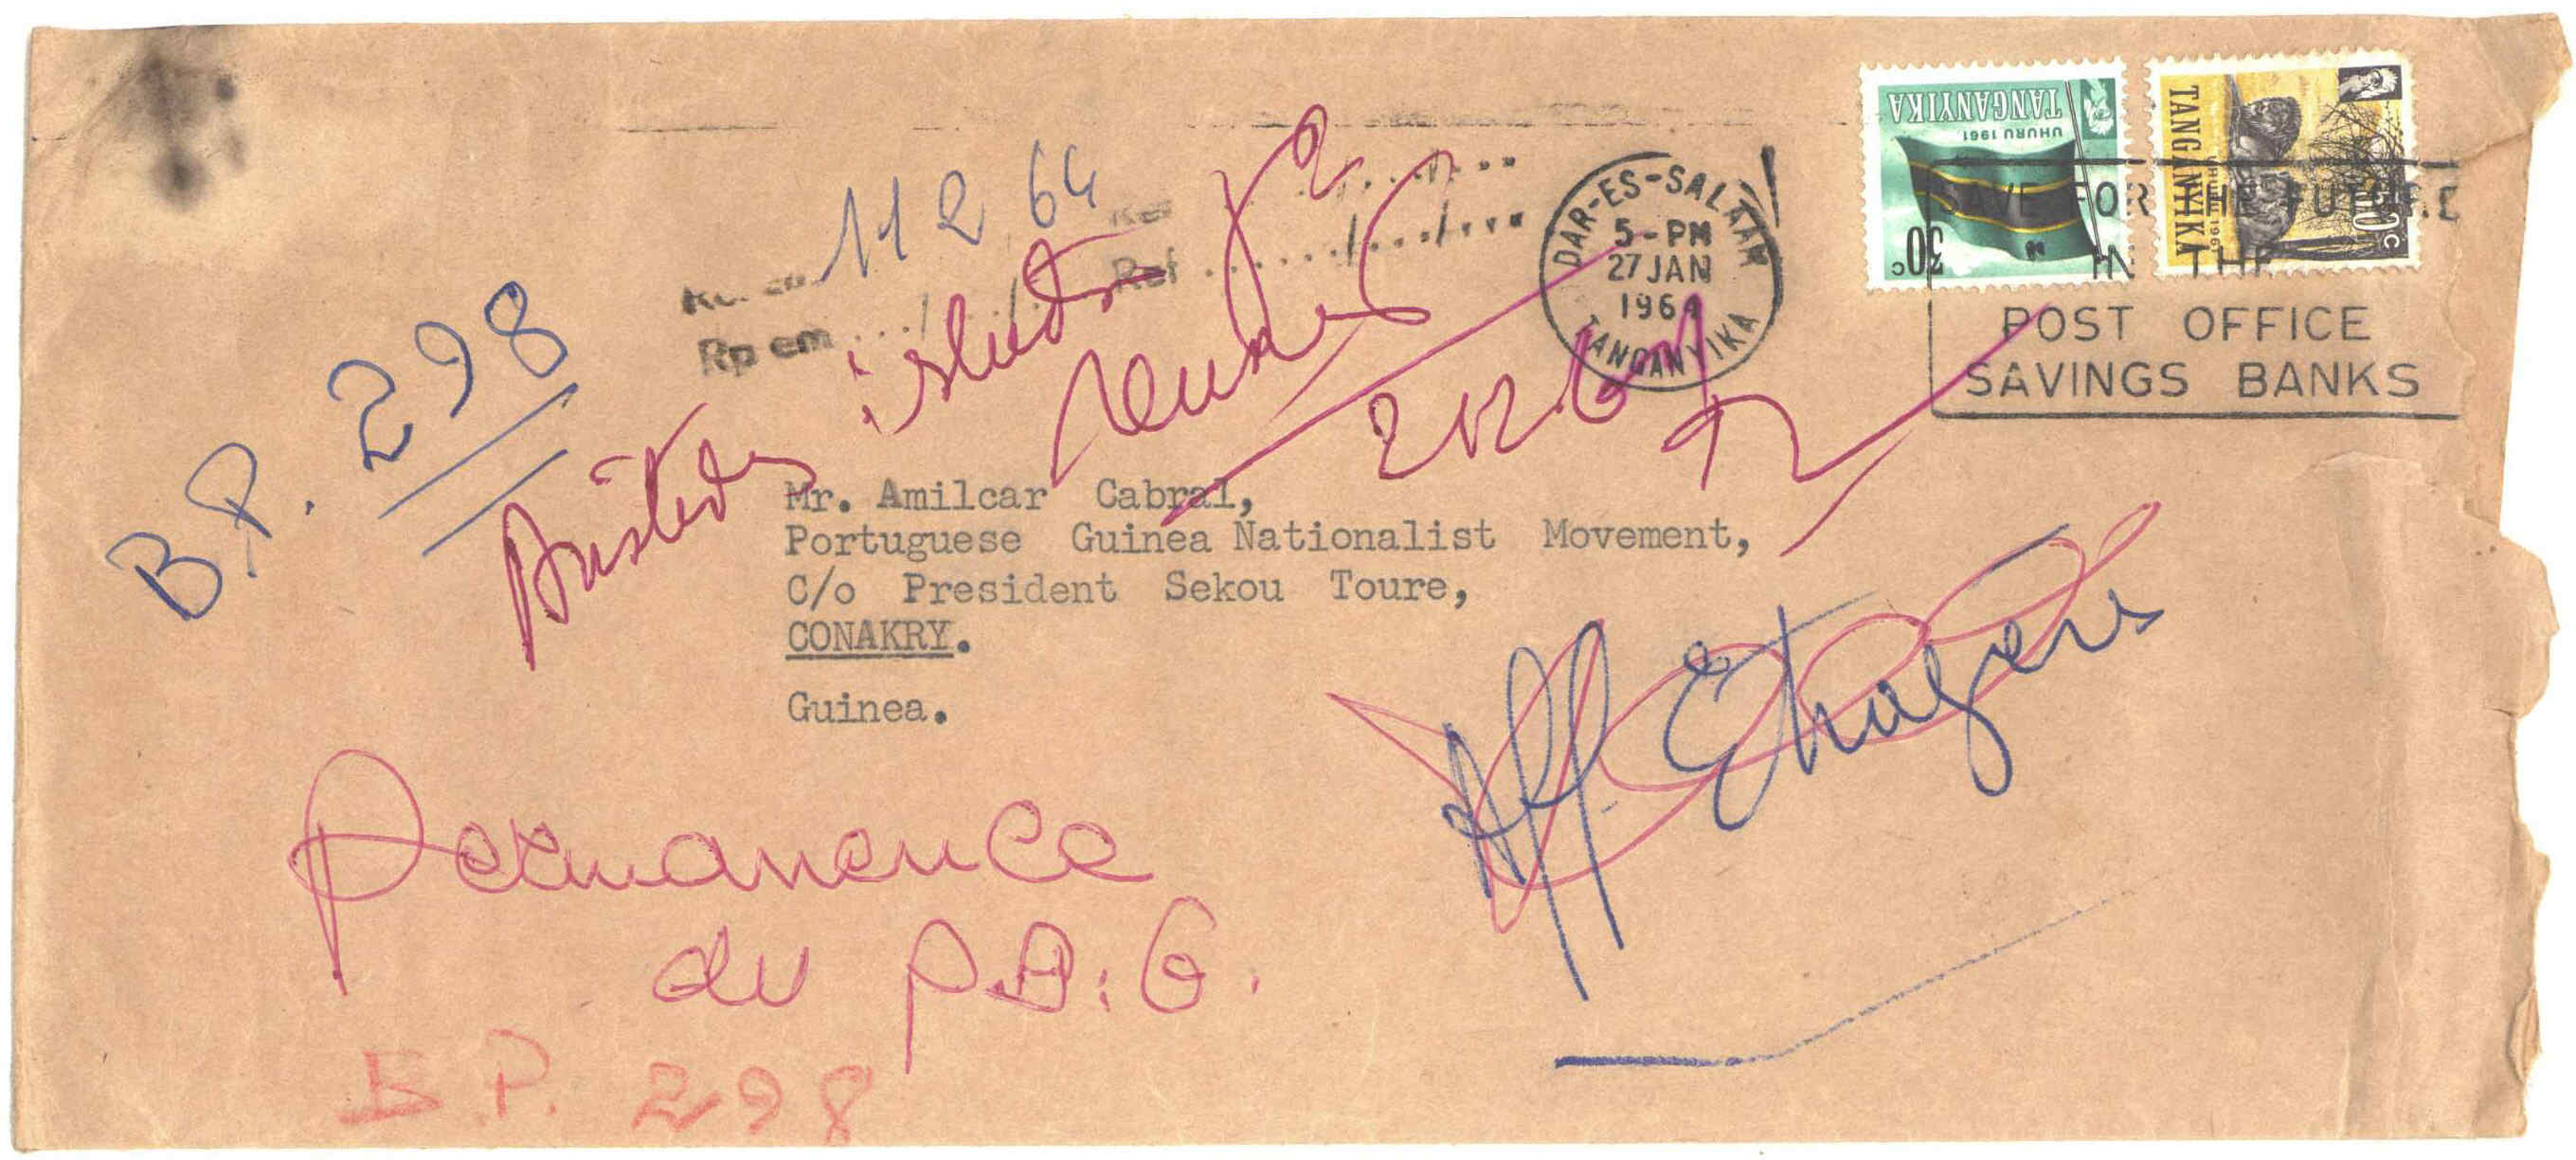 TANGANYIKA
UHURU 1961
30c
TANGANYIKA
UHURU 1961
50c
DAR-ES-SALAAM
5-PM
27 JAN
1964
TANGANYIKA
SAVE FOR THE FUTURE
IN THE
POST OFFICE
SAVINGS BANKS
11 2 64
Ref ....../..../....
Rp em ..../..../....
B.P. 298
Mr. Amilcar Cabral,
Portuguese Guinea Nationalist Movement,
C/o President Sekou Toure,
CONAKRY.
Guinea.
Aff. Etrangeres
Permanence
du P.D.G.
B.P. 298